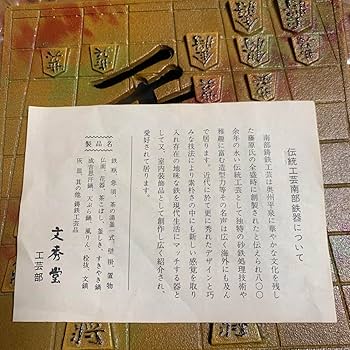 伝統工芸南部鉄器について
南部鋳鉄工芸は奥州平泉に華やかな文化を残し
た藤原氏の全盛時に創製されたと伝えられ八〇〇
余年の永い伝統工芸として独特の砂鉄処理技術や
雅趣に富む造型力等その名声は広く海外にも及ん
で居ります。近代に於て更に秀れたデザインと巧
みな技法により素朴さの中にも新しい感覚を取り
入れ存在の地味な鉄を現代生活にマッチする器と
して又、室内装飾品として創作し広く紹介され、
愛好されて居ります。
製品名
鉄瓶、急須、茶の湯釜一式、壁掛、置物
仏画、花器、茶こぼし、釜しき、すきやき鍋
成吉思汗鍋、天ぷら鍋、風りん、栓抜、文鎮
灰皿、其の他鋳鉄工芸品
文秀堂
工芸部